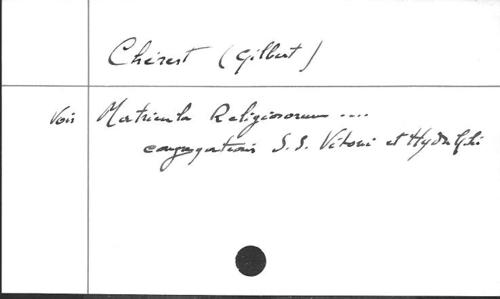 Chérest (Gilbert)
Voir Matricula Religiosorum ....
congregationis S.S. Vitoni et Hydulphi